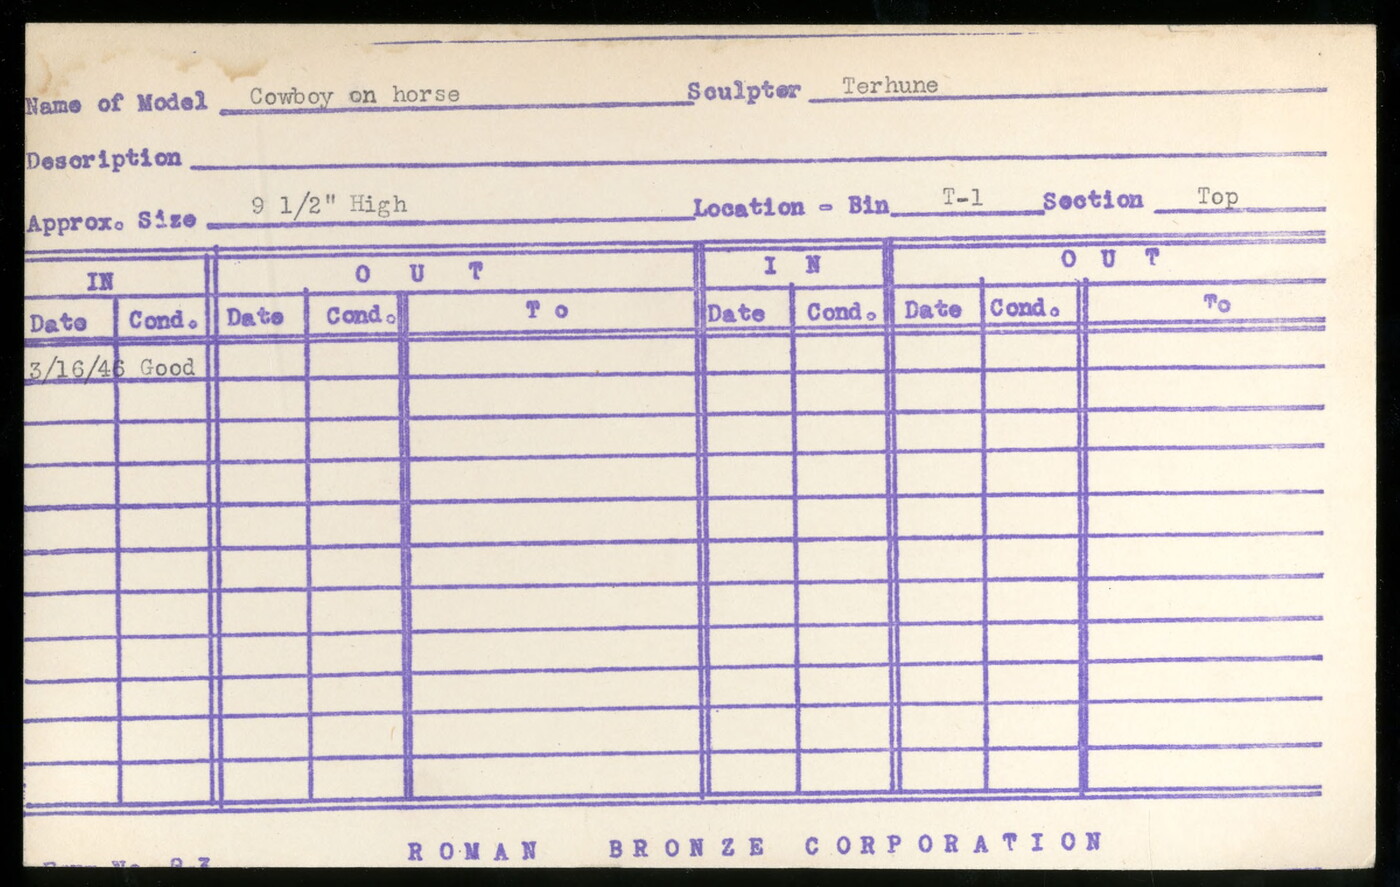 Name of Model Cowboy on horse Sculpter Terhune
Description
Approx. Size 9 1/2" High Location - Bin T-1 Section Top
IN O U T I N O U T
Date Cond. Date Cond. T o Date Cond. Date Cond. To
3/16/46 Good
ROMAN BRONZE CORPORATION